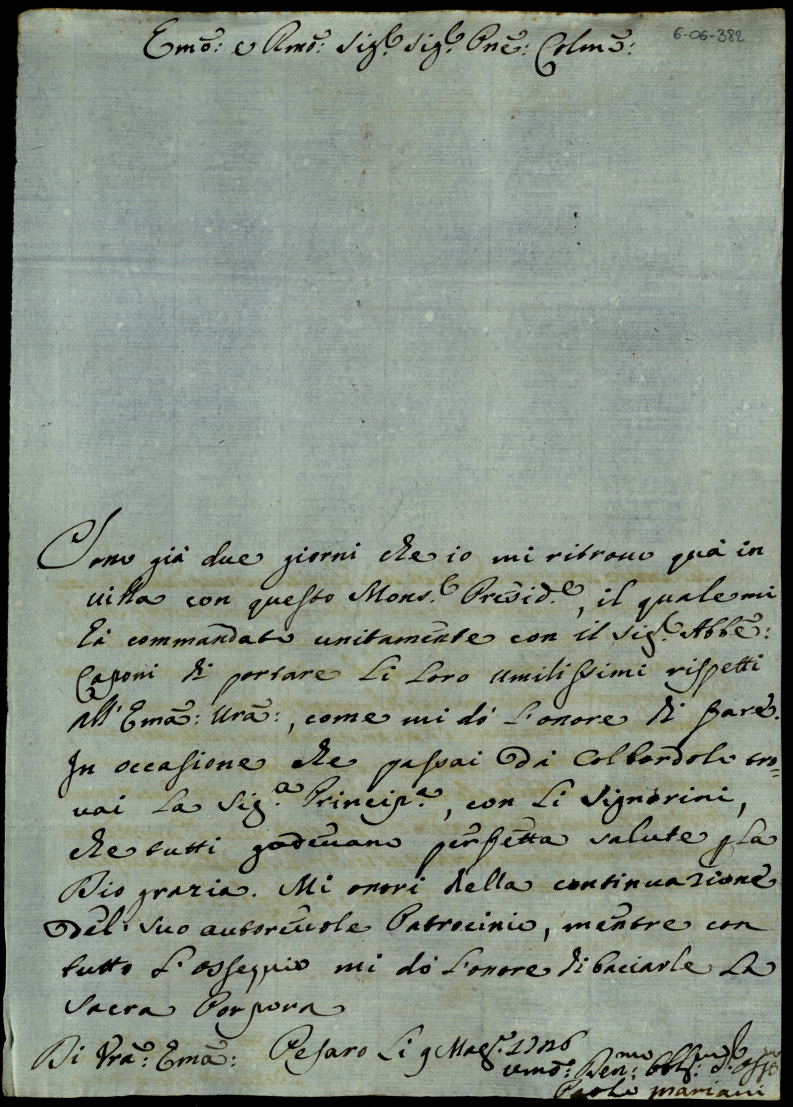 6-06-382
Emo: e Rmo: Sigr Sigr: Pne: Colmo:
Sono già due giorni che io mi ritrovo quà in
villa con questo Mons.r Presid.e, il quale mi
hà commandato unitamente con il Sigr. Abbe:
Caponi di portare li loro umilissimi rispetti
all'Ema: Vra:, come mi dò l'onore di fare.
In occasione che passai da Colbordolo tro=
vai la Sig.a Princip.a, con li Signorini,
che tutti godevano perfetta salute p la
Dio grazia. Mi onori della continuazione
del suo autorevole Patrocinio, mentre con
tutto l'ossequio mi dò l'onore di baciarle la
Sacra Porpora
Di Vra: Ema: Pesaro li 9 Mag.
umo: Paolo Mariani